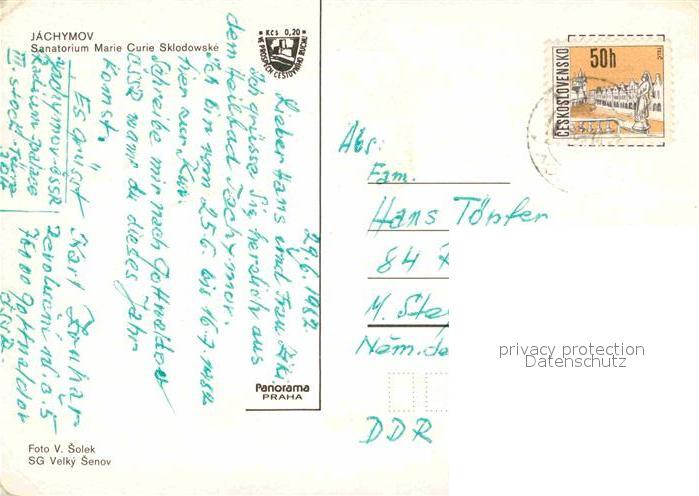 JÁCHYMOV
Sanatorium Marie Curie Sklodowské
Kčs 0,20
VE PROSPĚCH CESTOVNÍHO RUCHU
29.6.1982
Lieber Hans und Frau
ich grüsse Sie herzlich aus
dem Heilbad Jáchymov.
Ich bin vom 25.6. bis 16.7.
hier zur Kur.
Schreibe mir nach Gottwaldov
ČSSR wann du dieses Jahr
Komst.
Es grüsst Karl
Jachymov-ČSSR
Radium palace
III. stock
Revoluční
76000 Gottwaldov
ČSSR.
Panorama
PRAHA
Foto V. Šolek
SG Velký Šenov
ČESKOSLOVENSKO
50h
Abs:
Fam.
Hans Töpfer
84
M.
Něm. de
DDR
privacy protection
Datenschutz